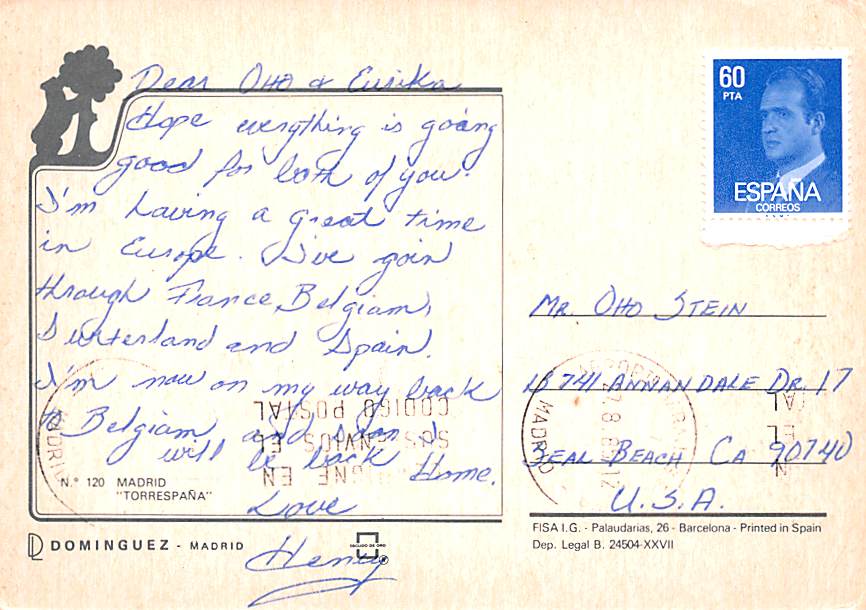 Dear Otto & Eurika
Hope everything is going
good for both of you.
I'm having a great time
in Europe. I've goin
through France, Belgiam,
Switerland and Spain.
I'm now on my way back
to Belgiam and then I
will be back Home.
Love
Henry
N.° 120 MADRID
"TORRESPAÑA"
DOMINGUEZ - MADRID
ESCUDO DE ORO
60
PTA
ESPAÑA
CORREOS
MR. OTTO STEIN
13741 ANNANDALE DR. 17
SEAL BEACH CA 90740
U.S.A.
FISA I.G. - Palaudarias, 26 - Barcelona - Printed in Spain
Dep. Legal B. 24504-XXVII
CODIGO POSTAL
SUS ENVIOS EL
CONSIGNE EN
MADRID
MADRID